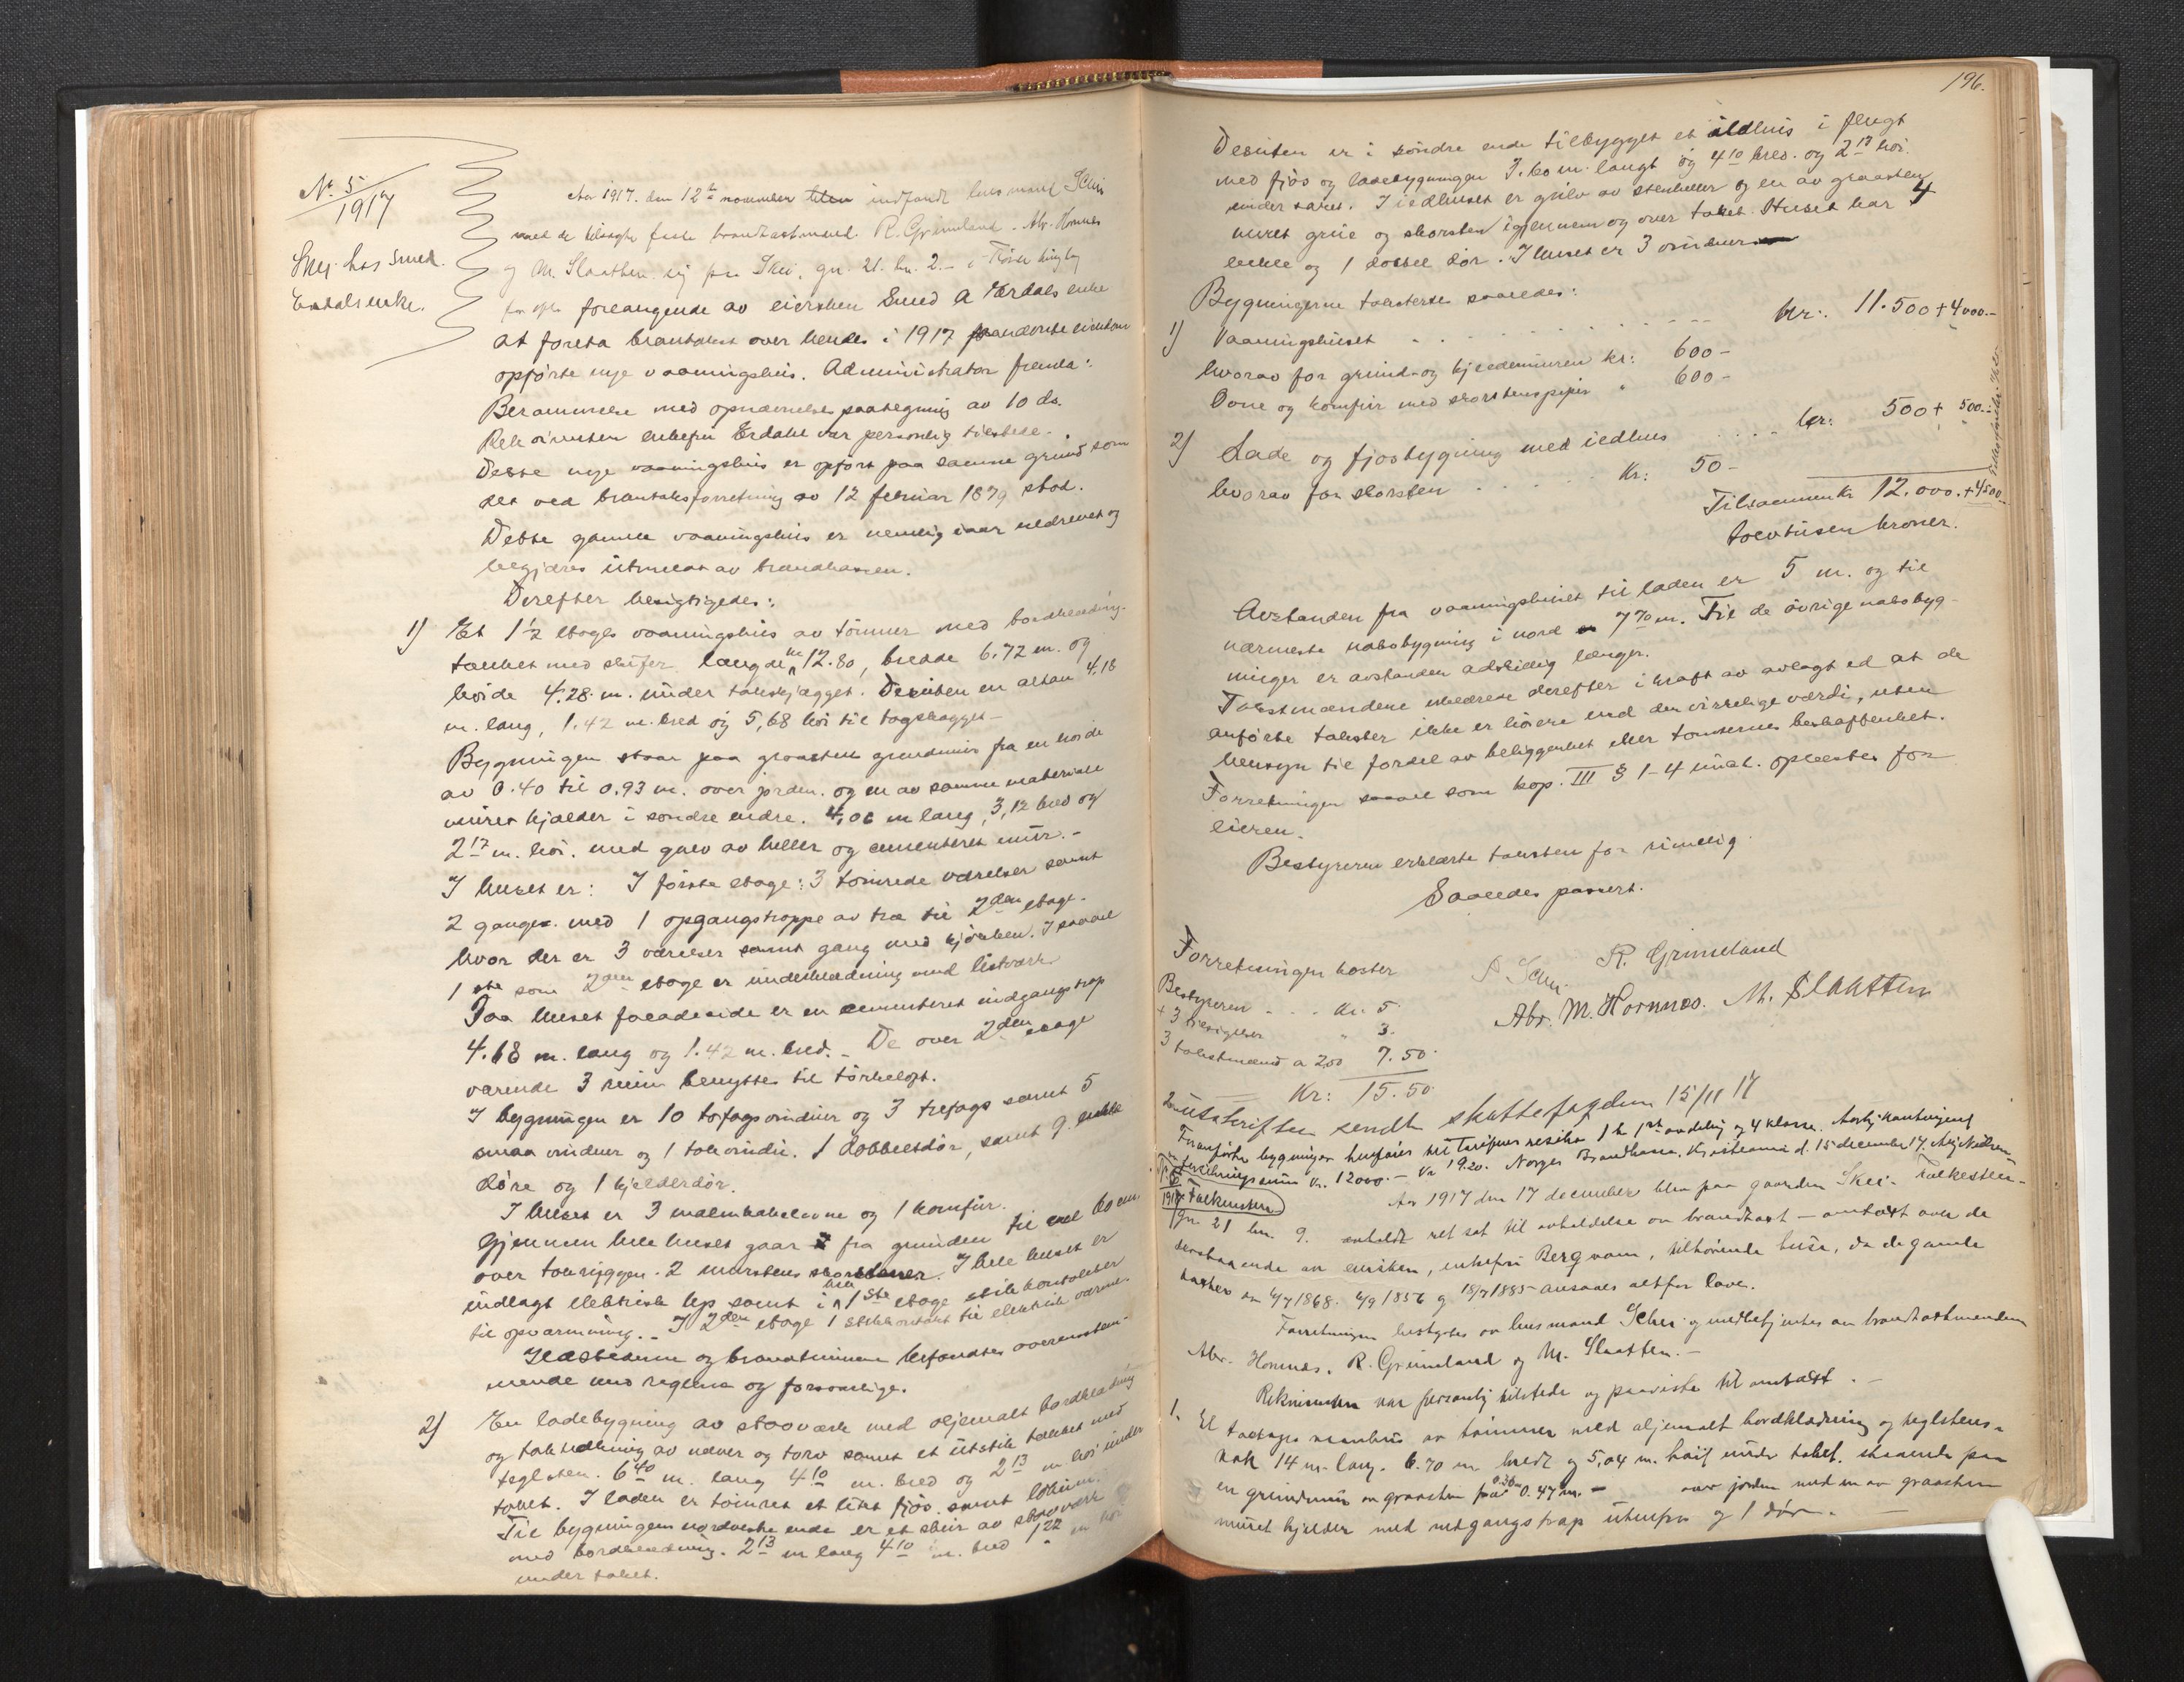 No 5/1917
Skei hos smed
Erdals enke.
Aar 1917. den 12te november blev indfandt lensmand Schei
med de tilsagte faste brandtakstmænd R. Grimeland. Abr. Hornnes
og M. Slaatten sig paa Skei, gn. 21. bn. 2. i Førde tinglag
for efter forlangende av eiersken Smed A Erdals enke
at foreta brandtakst over hendes i 1917
opførte nye vaaningshus. Administrator fremla:
Berammelse med opnævnelses paategning av 10 ds.
Rekvirenten enkefru Erdahl var personlig tilstede.
Dette nye vaaningshus er opført paa samme grund som
det ved brandtakstforretning av 12 februar 1879 stod.
Dette gamle vaaningshus er nemlig iaar nedrevet og
begjæres utmeldt av brandkassen.
Derefter besigtigedes:
1) Et 1½ etages vaaningshus av tømmer med bordklædning.
tækket med skifer. længde 12.80, bredde 6.72 m. og
høide 4.28 m. under takskjægget. Desuten en altan 4.18
m. lang, 1.42 m. bred og 5,68 høi til tagskægget –
Bygningen staar paa graasten grundmur fra en høide
av 0.40 til 0.93 m. over jorden. og en av samme materiale
muret kjælder i søndre endre. 4,06 m lang, 3,12 bred og
2 17 m. høi. med gulv av heller og cementeret mur. –
I huset er: I første etage: 3 tømrede værelser samt
2 ganger. med 1 opgangstrappe av træ til 2den etage.
hvor der er 3 værelser samt gang med kjøkken. I saavel
1ste som 2den etage er underklædning med listværk
Paa husets facadeside er en cementeret indgangstrap
4.18 m. lang og 1.42 m. bred. – De over 2den etage
værende 3 rum benyttes til tørkeloft.
I bygningen er 10 tofagsvinduer og 3 trefags samt 5
smaa vinduer og 1 takvindu. 1 dobbeltdør, samt 9 enkle
døre og 1 kjelderdør.
I huset er 3 malmkakelovne og 1 komfur.
Gjennem hele huset gaar 2 fra grunden til vel 60 cm
over takryggen. 2 murstens skorstener. I hele huset er
indlagt elektrisk lys samt i 1ste etage stikkontakter
til opvarmning. – I 2den etage 1 stikkontakt til elektrisk varme.
Ildstederne og brandmurene befandtes overensstem-
mende med reglerne og forsvarlige.
2) En ladebygning av stavværk med oljemalt bordklædning
og taktækning av næver og torv samt et utstik tækket med
teglsten. 6 40 m. lang 4 10 m. bred og 2 13 m høi under
taket. I laden er tømret et litet fjøs samt
Til bygningens nordvestre ende er et skur av stavværk
med bordklædning. 2 13 m lang 4 10 m. bred 1 22 m høi
under taket.
196.
Desuten er i søndre ende tilbygget et ildhus i flugt
med fjøs og ladebygningen 3.60 m. langt og 4 10 bred. og 2 17 høi.
under taket. I ildhuset er gulv av stenheller og en av graasten
muret grue og skorsten igjennem og over taket. Huset har 4
enkle og 1 dobbel dør. I huset er 3 vinduer
Bygningerne taksertes saaledes:
1) Vaaningshuset . . . . . . kr: 11.500 + 4000.–
hvorav for grund- og kjeldermuren kr: 600 –
Ovne og komfur med skorstenspiper " 600 –
2) Lade og fjøsbygning med ildhus . . . . kr: 500 + 500.–
hvorav for skorsten . . . . Kr: 50 –
Tilsammen kr 12.000. + 4500.–
tolvtusen kroner.
Avstanden fra vaaningshuset til laden er 5 m. og til
nærmeste nabobygning i nord 7 70 m. Til de øvrige nabobyg-
ninger er avstanden adskillig længer.
Takstmændene erklærte derefter i kraft av avlagt ed at de
anførte takster ikke er høiere end den virkelige værdi, uten
hensyn til fordel av beliggenhet eller tomternes beskaffenhet.
Forretningen saavel som kap. III § 1–4 incl. oplæstes for
eieren.
Bestyreren erklærte taksten for rimelig.
Saaledes passert.
Forretningen koster
Bestyreren . . . Kr. 5.
3.
3 takstmænd a 2,50 7.50
Kr: 15.50
A Schei. R. Grimeland
Abr. M. Hornnes. M. Slaatten
utskrifter sendt skattefogden 15/11 17
Foranførte bygninger henføres til Tarifens risiko 1 h 1ste avdeling og 4 klasse. Aarlig kontingent
av forsikringssum kr. 12000. – kr 19.20. Norges Brandkasse, Kristiania d. 15 december 17.
No 6/1917 Falkensteen
Aar 1917 den 17 december blev paa gaarden Skei – Falkesteen –
gn. 21 bn. 9. avholdt ret sat til avholdelse av brandtakst – omtakst over de
sammesteds av eiersken, enkefru Bergvam, tilhørende huse, da de gamle
takster av 4/7 1868. 4/9 1856 og 18/7 1885 ansaaes altfor lave.
Forretningen bestyrtes av lensmand Schei og medbetjentes av brandtakstmændene
Abr. Hornnes, R. Grimeland og M. Slaatten. –
Rekvirenten var personlig tilstede og paaviste til omtakst. –
1. Et toetages vaanhus av tømmer med oljemalt bordklædning og teglstens-
tak 14 m. lang. 6.70 m bredt og 5,04 m. høit under taket, staaende paa
en grundmur av graasten fra 0.36 0.47 m. – over jorden med en av graasten
muret kjelder med nedgangstrap utenfra og 1 dør. –